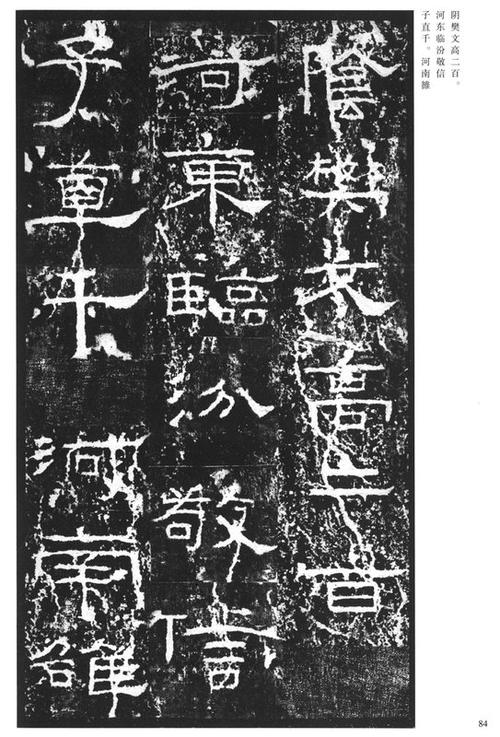 阴樊文高二百。
河东临汾敬信
子直千。河南雒
陰樊文高二百
河東臨汾敬信
子直千 河南雒
84